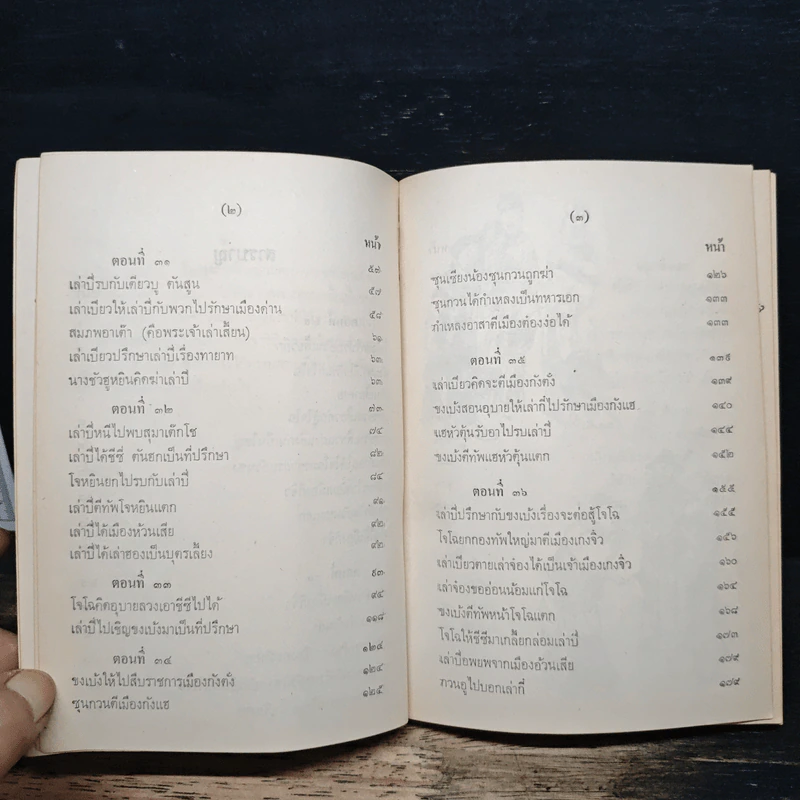 (๒)
หน้า
ตอนที่ ๓๑ ๕๗
เล่าปี่รบกับเตียวบู ตันสูน ๕๗
เล่าเปียวให้เล่าปี่กับพวกไปรักษาเมืองด่าน ๕๘
สมภพอาเต๊า (คือพระเจ้าเล่าเสี้ยน) ๖๑
เล่าเปียวปรึกษาเล่าปี่เรื่องทายาท ๖๓
นางชัวฮูหยินคิดฆ่าเล่าปี่ ๖๓
ตอนที่ ๓๒ ๗๓
เล่าปี่หนีไปพบสุมาเต๊กโช ๗๔
เล่าปี่ได้ชีซี ตันฮกเป็นที่ปรึกษา ๘๒
โจหยินยกไปรบกับเล่าปี่ ๘๔
เล่าปี่ตีทัพโจหยินแตก ๙๑
เล่าปี่ได้เมืองห้วนเสีย ๙๒
เล่าปี่ได้เล่าฮองเป็นบุตรเลี้ยง ๙๒
ตอนที่ ๓๓ ๙๓
โจโฉคิดอุบายลวงเอาชีซีไปได้ ๙๔
เล่าปี่ไปเชิญขงเบ้งมาเป็นที่ปรึกษา ๑๑๘
ตอนที่ ๓๔ ๑๒๔
ขงเบ้งให้ไปสืบราชการเมืองกังตั๋ง ๑๒๔
ซุนกวนตีเมืองกังแฮ ๑๒๕
(๓)
หน้า
ซุนเซียงน้องซุนกวนถูกฆ่า ๑๒๖
ซุนกวนได้กำเหลงเป็นทหารเอก ๑๓๓
กำเหลงอาสาตีเมืองต๋องง่อได้ ๑๓๓
ตอนที่ ๓๕ ๑๓๕
เล่าเปียวคิดจะตีเมืองกังตั๋ง ๑๓๙
ขงเบ้งสอนอุบายให้เล่ากี๋ไปรักษาเมืองกังแฮ ๑๔๐
แฮหัวตุ้นรับอาไปรบเล่าปี่ ๑๔๕
ขงเบ้งตีทัพแฮหัวตุ้นแตก ๑๕๒
ตอนที่ ๓๖ ๑๕๕
เล่าปี่ปรึกษากับขงเบ้งเรื่องจะต่อสู้โจโฉ ๑๕๕
โจโฉยกกองทัพใหญ่มาตีเมืองเกงจิ๋ว ๑๕๖
เล่าเปียวตายเล่าจ๋องได้เป็นเจ้าเมืองเกงจิ๋ว ๑๖๐
เล่าจ๋องขออ่อนน้อมแก่โจโฉ ๑๖๔
ขงเบ้งตีทัพหน้าโจโฉแตก ๑๖๘
โจโฉให้ชีซีมาเกลี้ยกล่อมเล่าปี่ ๑๗๓
เล่าปี่อพยพจากเมืองอ้วนเสีย ๑๗๙
กวนอูไปบอกเล่ากี๋ ๑๗๙